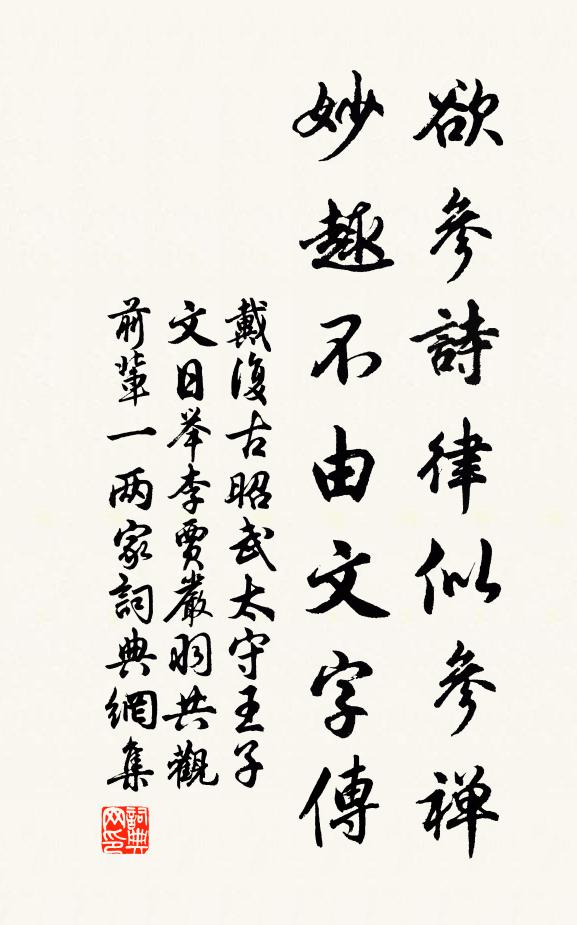 欲参詩律似参禅
妙趣不由文字傳
戴復古昭武太守王子
文日举李賈嚴羽共觀
前輩一两家詞典網集
詞典網印